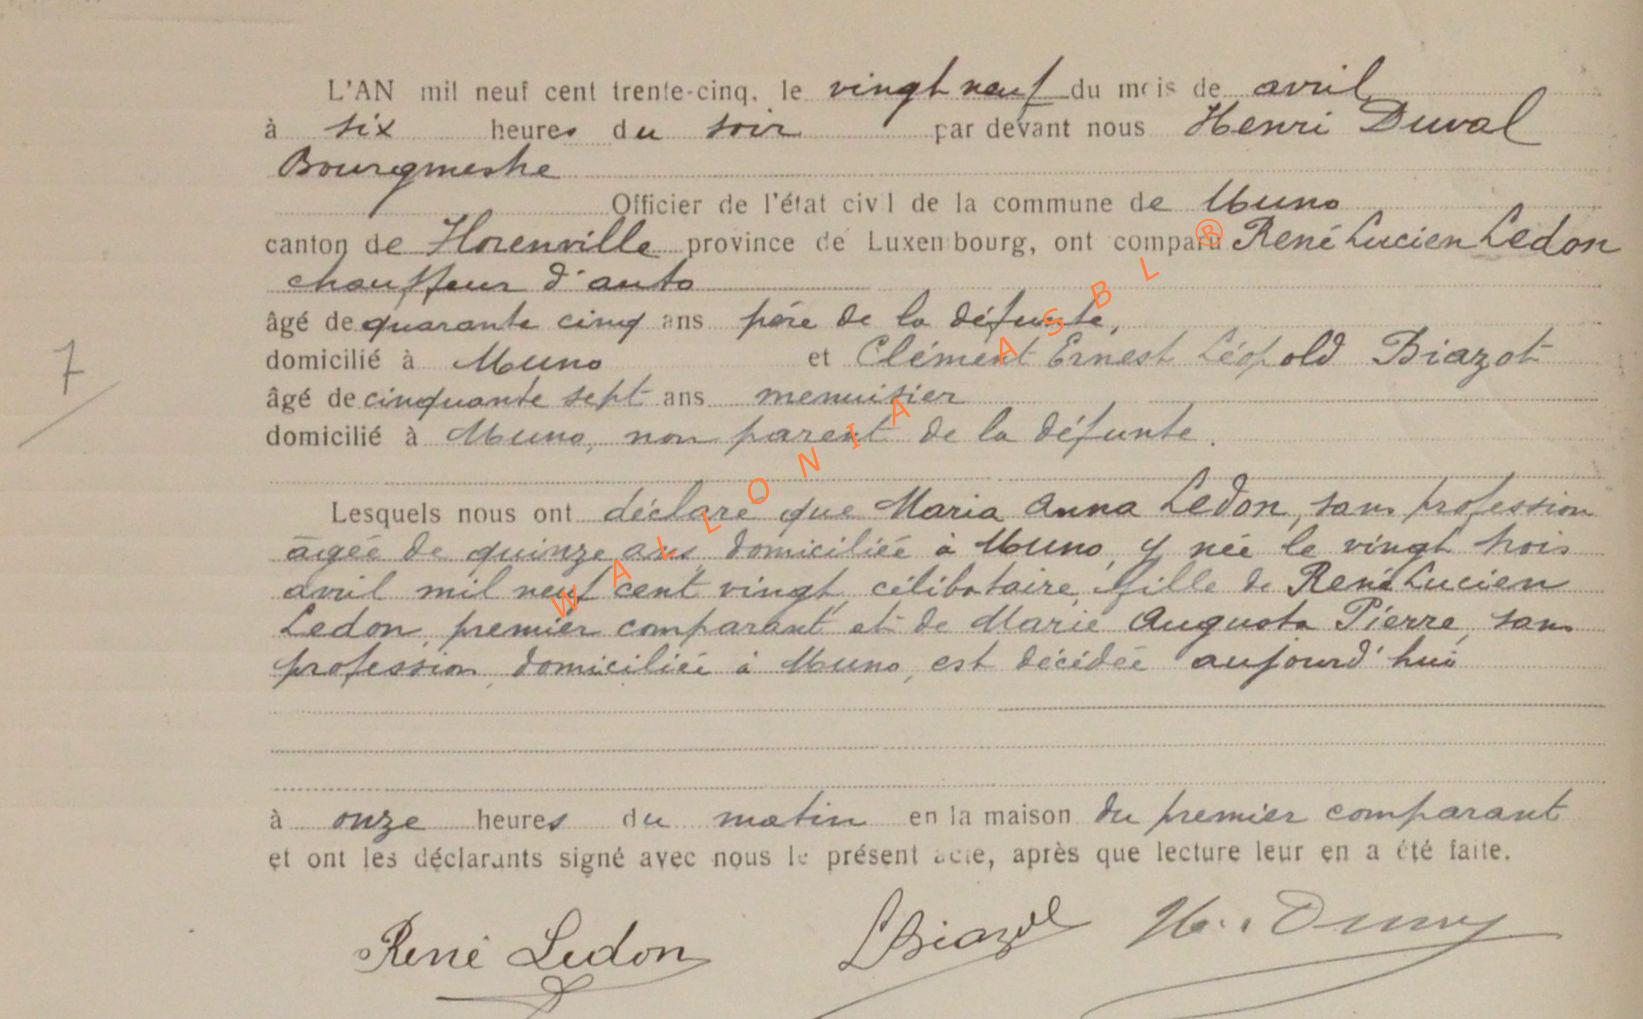 L'AN mil neuf cent trente-cinq, le vingt neuf du mois de avril
à six heures du soir par devant nous Henri Duval
Bourgmestre
Officier de l'état civil de la commune de Muno
canton de Florenville province de Luxembourg, ont comparu René Lucien Ledon
chauffeur d'auto
âgé de quarante cinq ans père de la défunte,
domicilié à Muno et Clément Ernest Léopold Biazot
âgé de cinquante sept ans menuisier
domicilié à Muno, non parent de la défunte.
7
Lesquels nous ont déclaré que Maria Anna Ledon, sans profession
âgée de quinze ans, domiciliée à Muno, y née le vingt trois
avril mil neuf cent vingt, célibataire, fille de René Lucien
Ledon, premier comparant et de Marie Augusta Pierre, sans
profession, domiciliée à Muno, est décédée aujourd'hui
à onze heures du matin en la maison du premier comparant
et ont les déclarants signé avec nous le présent acte, après que lecture leur en a été faite.
René Ledon LBiazot H. Duval
WALLONIA ASBL ®